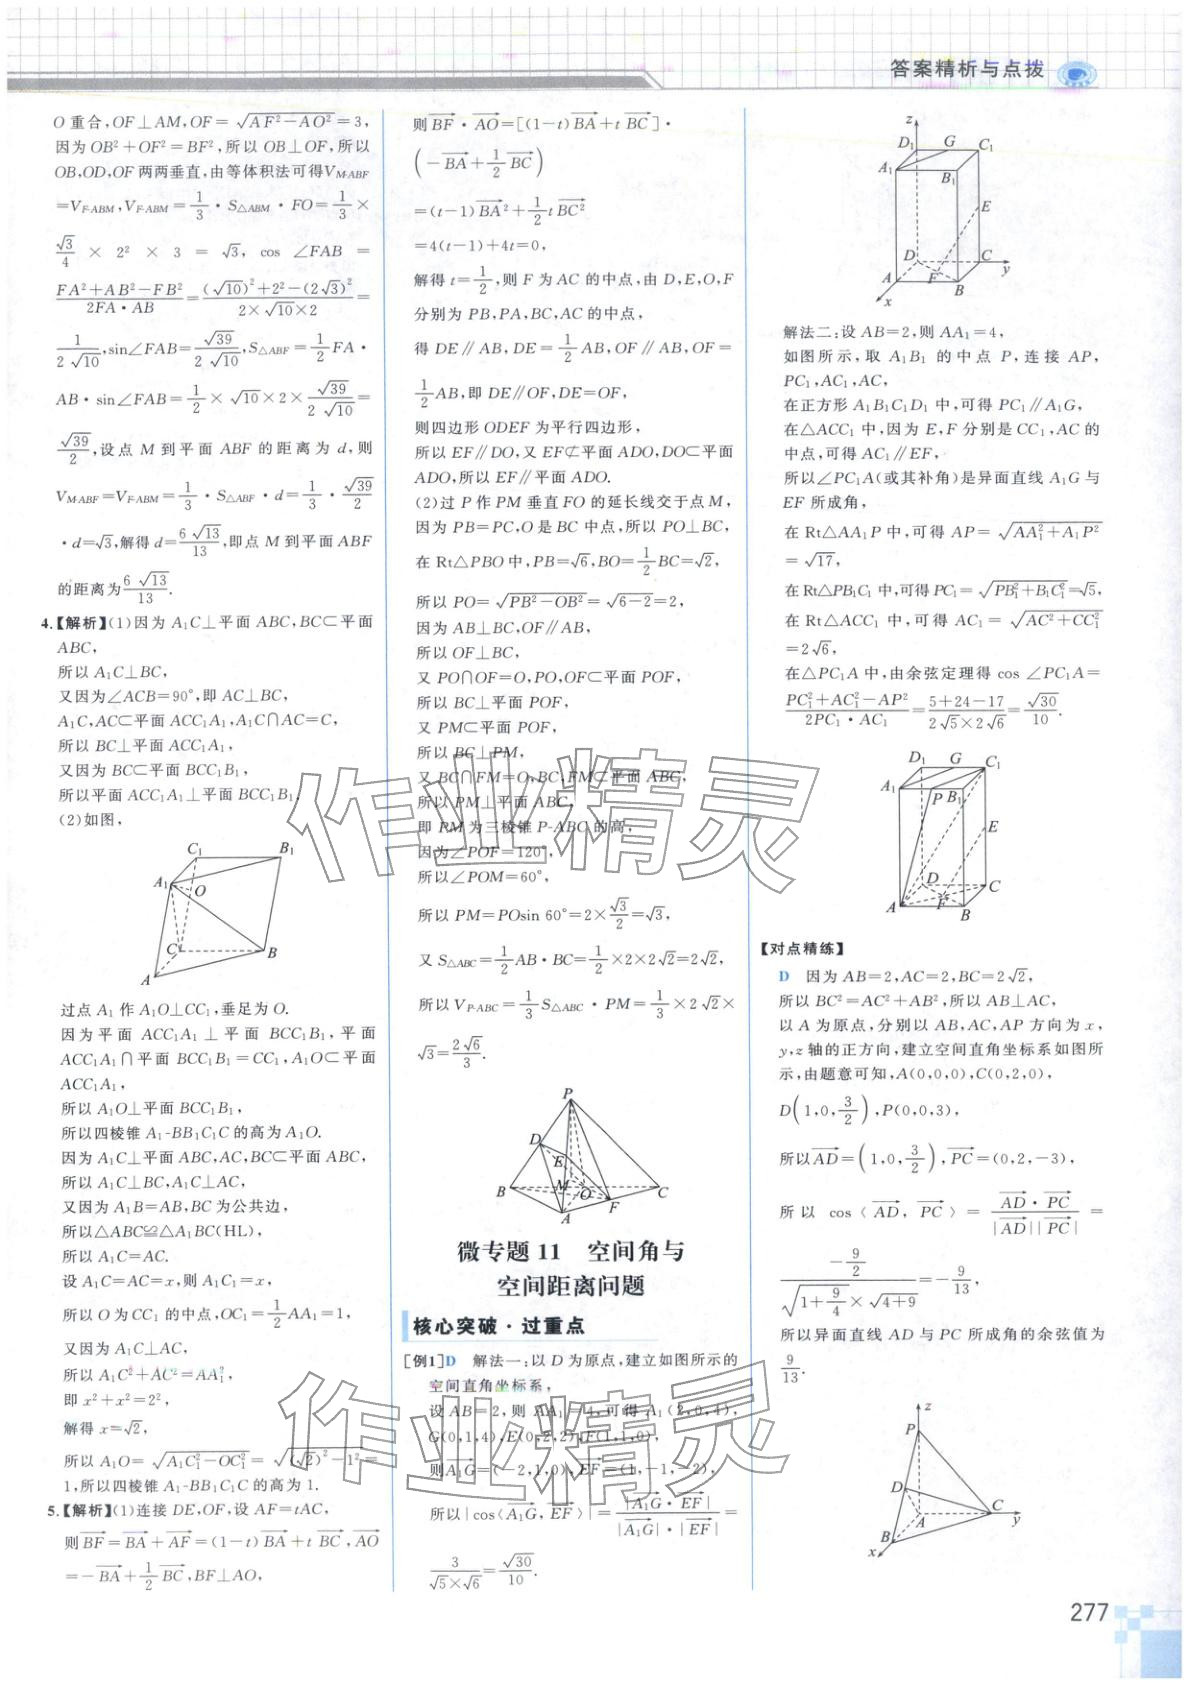 答案精析与点拨
O 重合,OF⊥AM,OF=√(AF²−AO²)=3,
因为 OB²+OF²=BF²,所以 OB⊥OF,所以
OB,OD,OF 两两垂直,由等体积法可得V_{M-ABF}
=V_{F-ABM},V_{F-ABM}=1/3·S△ABM·FO=1/3×
√3/4×2²×3=√3,cos ∠FAB=
(FA²+AB²−FB²)/(2FA·AB)=((√10)²+2²−(2√3)²)/(2×√10×2)=
1/(2√10),sin∠FAB=√39/(2√10),S△ABF=1/2FA·
AB·sin∠FAB=1/2×√10×2×√39/(2√10)=
√39/2,设点 M 到平面 ABF 的距离为 d,则
V_{M-ABF}=V_{F-ABM}=1/3·S△ABF·d=1/3·√39/2
·d=√3,解得 d=6√13/13,即点 M 到平面 ABF
的距离为6√13/13.
4.【解析】(1)因为 A₁C⊥平面 ABC,BC⊂平面
ABC,
所以 A₁C⊥BC,
又因为∠ACB=90°,即 AC⊥BC,
A₁C,AC⊂平面 ACC₁A₁,A₁C∩AC=C,
所以 BC⊥平面 ACC₁A₁,
又因为 BC⊂平面 BCC₁B₁,
所以平面 ACC₁A₁⊥平面 BCC₁B₁.
(2)如图,
C₁
B₁
A₁
O
C
B
A
过点 A₁ 作 A₁O⊥CC₁,垂足为 O.
因为平面 ACC₁A₁⊥平面 BCC₁B₁,平面
ACC₁A₁∩平面 BCC₁B₁=CC₁,A₁O⊂平面
ACC₁A₁,
所以 A₁O⊥平面 BCC₁B₁,
所以四棱锥 A₁-BB₁C₁C 的高为 A₁O.
因为 A₁C⊥平面 ABC,AC,BC⊂平面 ABC,
所以 A₁C⊥BC,A₁C⊥AC,
又因为 A₁B=AB,BC 为公共边,
所以△ABC≌△A₁BC(HL),
所以 A₁C=AC.
设 A₁C=AC=x,则 A₁C₁=x,
所以 O 为 CC₁ 的中点,OC₁=1/2AA₁=1,
又因为 A₁C⊥AC,
所以 A₁C²+AC²=AA₁²,
即 x²+x²=2²,
解得 x=√2,
所以 A₁O=√(A₁C₁²−OC₁²)=√((√2)²−1²)=
1,所以四棱锥 A₁-BB₁C₁C 的高为 1.
5.【解析】(1)连接 DE,OF,设 AF=tAC,
则 BF=BA+AF=(1−t)BA+tBC,AO
=−BA+1/2BC,BF⊥AO,
则BF·AO=[(1−t)BA+tBC]·
(−BA+1/2BC)
=(t−1)BA²+1/2tBC²
=4(t−1)+4t=0,
解得 t=1/2,则 F 为 AC 的中点,由 D,E,O,F
分别为 PB,PA,BC,AC 的中点,
得 DE∥AB,DE=1/2AB,OF∥AB,OF=
1/2AB,即 DE∥OF,DE=OF,
则四边形 ODEF 为平行四边形,
所以 EF∥DO,又 EF⊄平面 ADO,DO⊂平面
ADO,所以 EF∥平面 ADO.
(2)过 P 作 PM 垂直 FO 的延长线交于点 M,
因为 PB=PC,O 是 BC 中点,所以 PO⊥BC,
在 Rt△PBO 中,PB=√6,BO=1/2BC=√2,
所以 PO=√(PB²−OB²)=√(6−2)=2,
因为 AB⊥BC,OF∥AB,
所以 OF⊥BC,
又 PO∩OF=O,PO,OF⊂平面 POF,
所以 BC⊥平面 POF,
又 PM⊂平面 POF,
所以 BC⊥PM,
又 BC∩FM=O,BC,FM⊂平面 ABC,
所以 PM⊥平面 ABC,
即 PM 为三棱锥 P-ABC 的高,
因为∠POF=120°,
所以∠POM=60°,
所以 PM=POsin 60°=2×√3/2=√3,
又 S△ABC=1/2AB·BC=1/2×2×2√2=2√2,
所以 V_{P-ABC}=1/3S△ABC·PM=1/3×2√2×
√3=2√6/3.
P
D
E
M
B
O
C
A
F
微专题 11 空间角与
空间距离问题
核心突破·过重点
[例1]D 解法一:以 D 为原点,建立如图所示的
空间直角坐标系,
设 AB=2,则 AA₁=4,可得 A₁(2,0,4),
G(0,1,4),E(0,2,2),F(1,1,0),
则A₁G=(−2,1,0),EF=(1,−1,−2),
所以|cos⟨A₁G,EF⟩|=|A₁G·EF|/(|A₁G|·|EF|)=
3/(√5×√6)=√30/10.
z
D₁
G
C₁
A₁
B₁
E
D
C
y
A
F
B
x
解法二:设 AB=2,则 AA₁=4,
如图所示,取 A₁B₁ 的中点 P,连接 AP,
PC₁,AC₁,AC,
在正方形 A₁B₁C₁D₁ 中,可得 PC₁∥A₁G,
在△ACC₁ 中,因为 E,F 分别是 CC₁,AC 的
中点,可得 AC₁∥EF,
所以∠PC₁A(或其补角)是异面直线 A₁G 与
EF 所成角,
在 Rt△AA₁P 中,可得 AP=√(AA₁²+A₁P²)
=√17,
在 Rt△PB₁C₁ 中,可得 PC₁=√(PB₁²+B₁C₁²)=√5,
在 Rt△ACC₁ 中,可得 AC₁=√(AC²+CC₁²)
=2√6,
在△PC₁A 中,由余弦定理得 cos ∠PC₁A=
(PC₁²+AC₁²−AP²)/(2PC₁·AC₁)=(5+24−17)/(2√5×2√6)=√30/10.
D₁
G
C₁
A₁
P
B₁
E
D
C
A
F
B
【对点精练】
D 因为 AB=2,AC=2,BC=2√2,
所以 BC²=AC²+AB²,所以 AB⊥AC,
以 A 为原点,分别以 AB,AC,AP 方向为 x,
y,z 轴的正方向,建立空间直角坐标系如图所
示,由题意可知,A(0,0,0),C(0,2,0),
D(1,0,3/2),P(0,0,3),
所以AD=(1,0,3/2),PC=(0,2,−3),
所以 cos⟨AD,PC⟩=AD·PC/(|AD||PC|)=
(−9/2)/(√(1+9/4)×√(4+9))=−9/13,
所以异面直线 AD 与 PC 所成角的余弦值为
9/13.
z
P
D
A
C
y
B
x
277
作业精灵
作业精灵